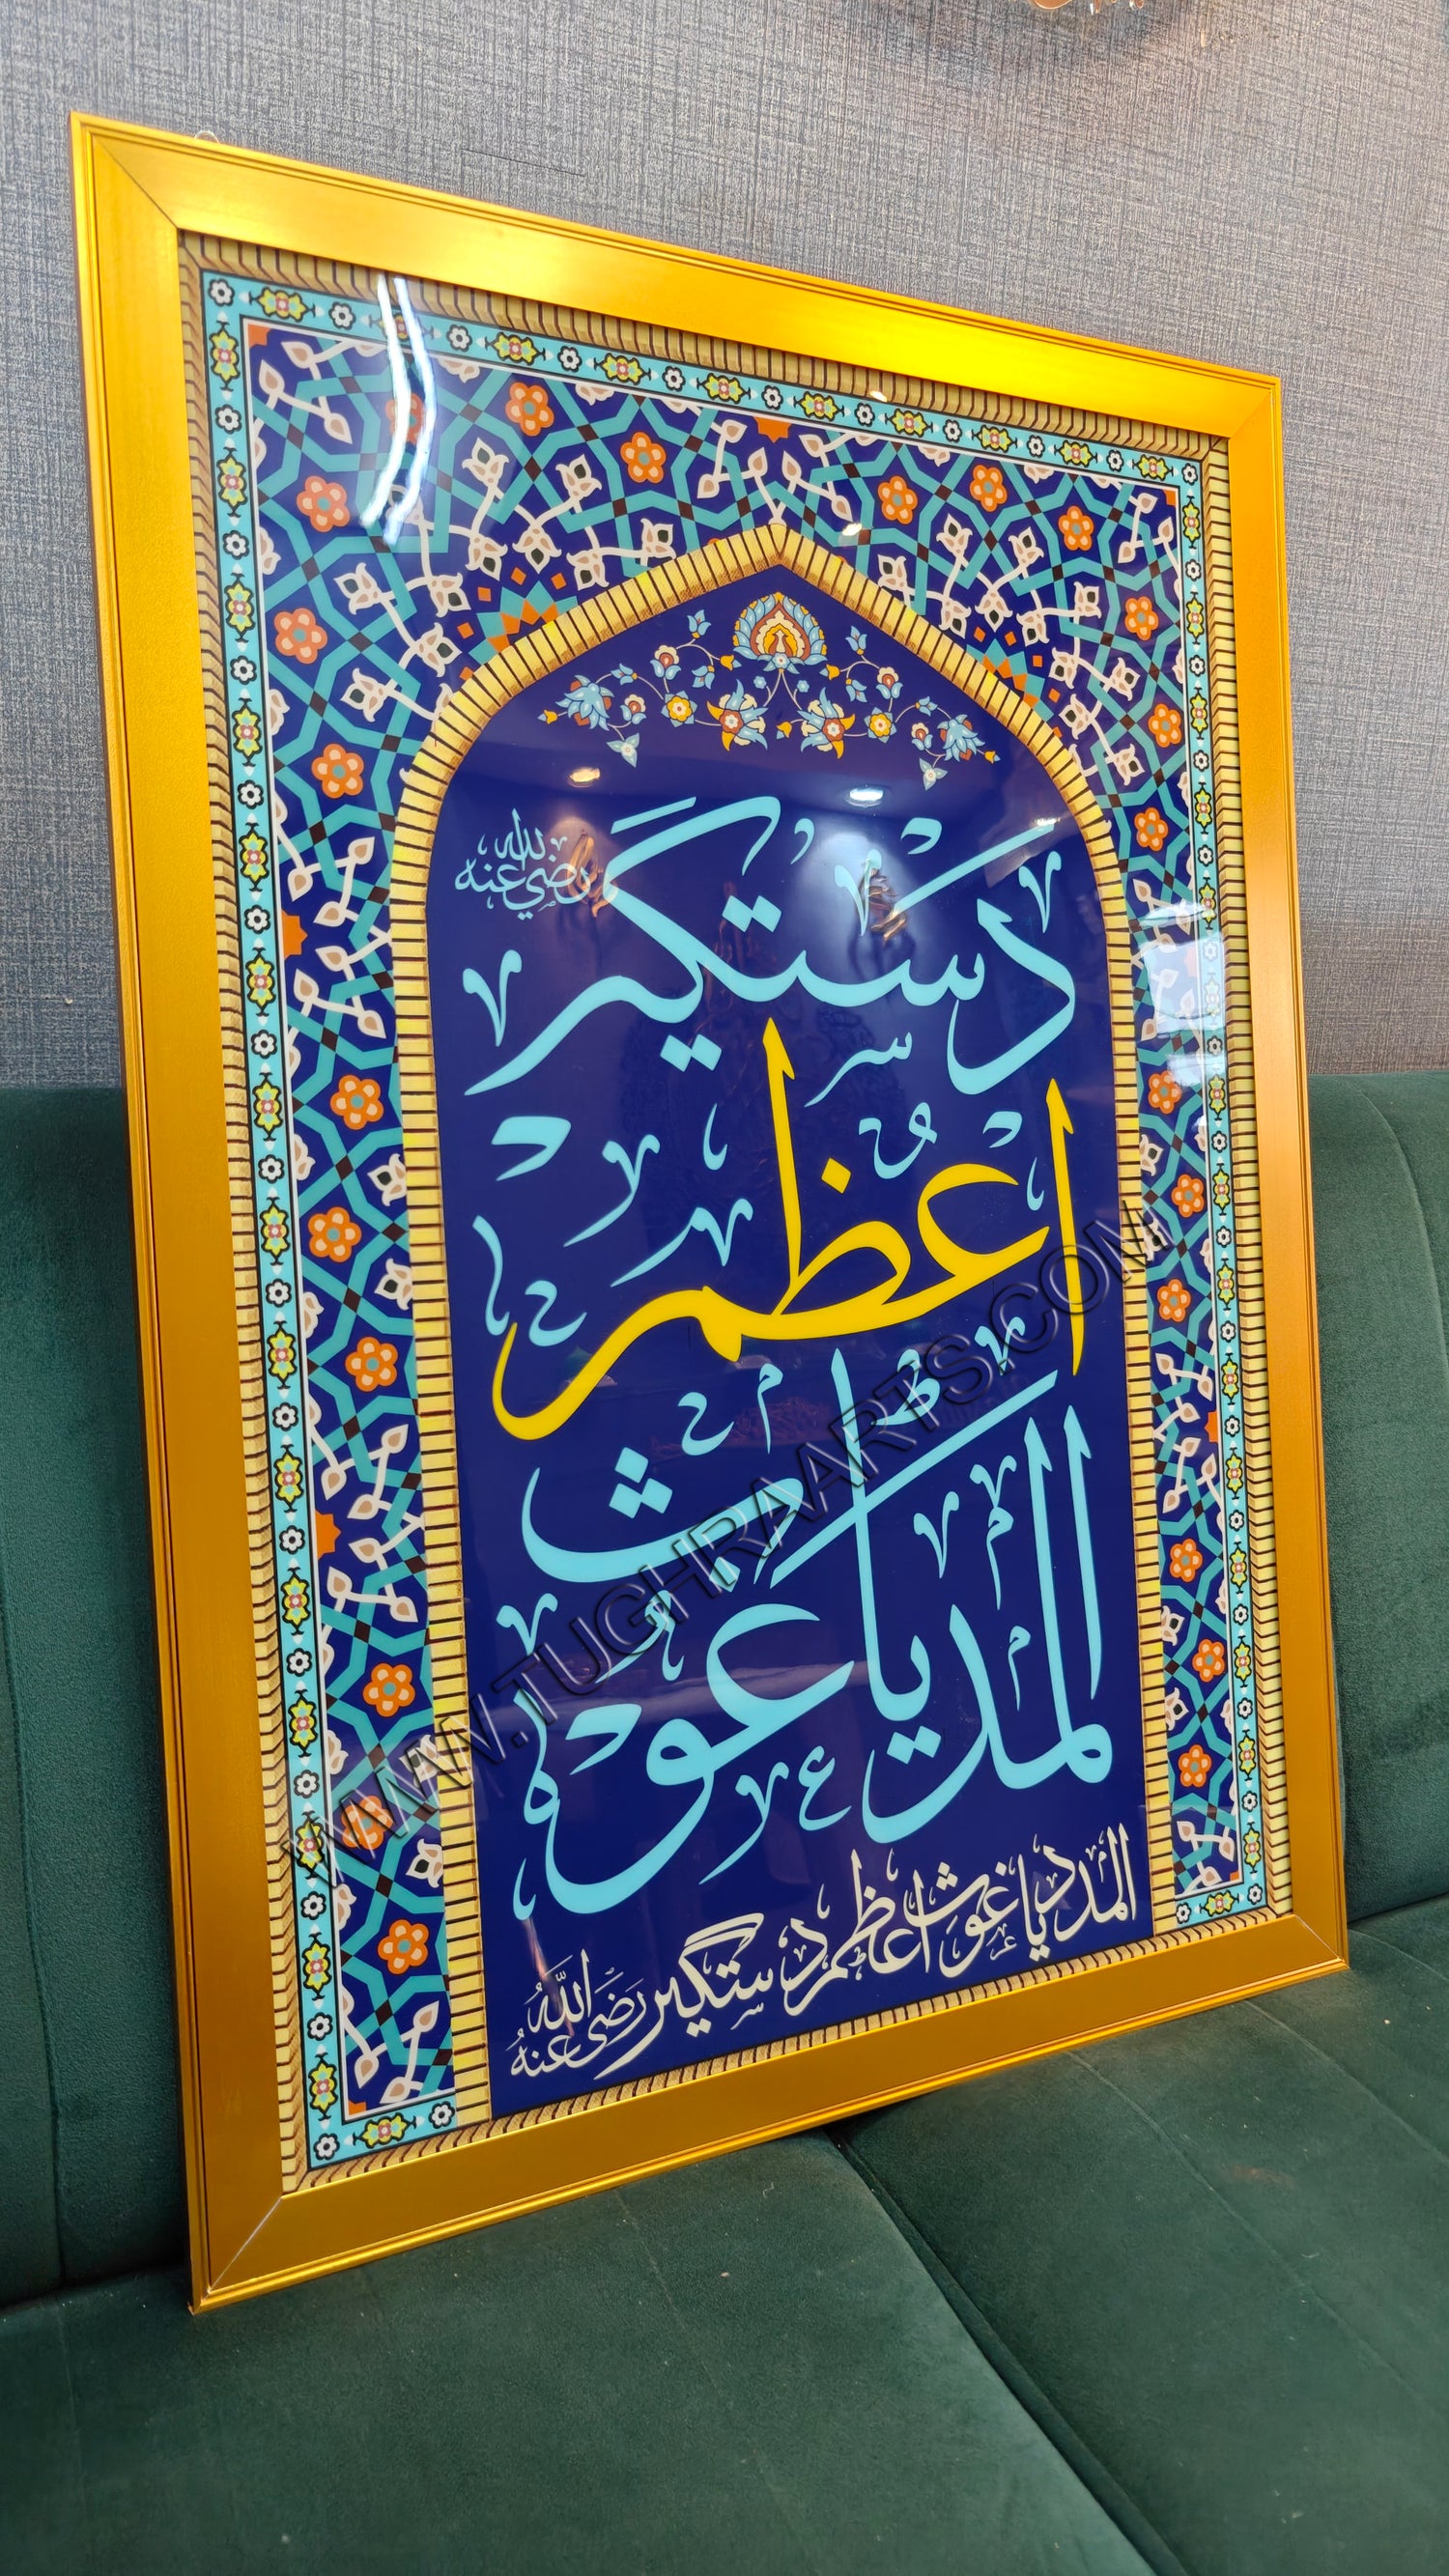 دستگیر
رضي الله عنه
اعظم
المدد یا غوث
المدد یا غوث اعظم دستگیر رَضَی اللّٰهُ عنهُ
WWW.TUGHRAARTS.COM